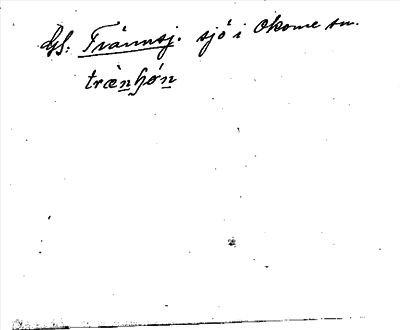 Gs: Trännsj. sjö i Okome sn.
trænhón